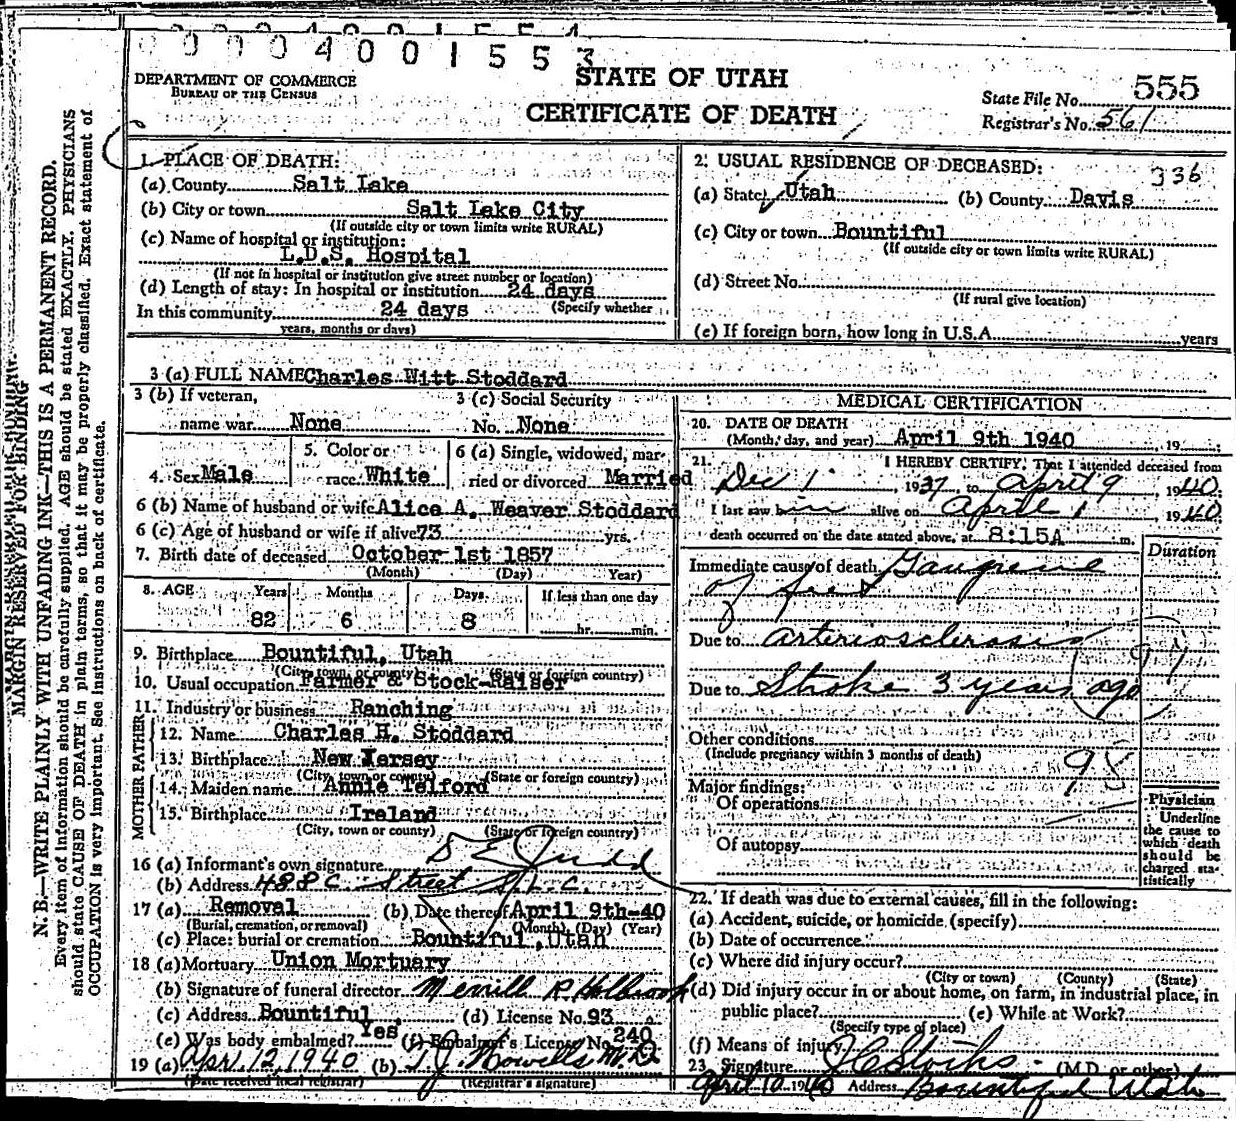 0000400 1553
DEPARTMENT OF COMMERCE
BUREAU OF THE CENSUS
STATE OF UTAH
CERTIFICATE OF DEATH
State File No. 555
Registrar's No. 561
MARGIN RESERVED FOR BINDING
N. B.—WRITE PLAINLY WITH UNFADING INK—THIS IS A PERMANENT RECORD.
Every item of information should be carefully supplied. AGE should be stated EXACTLY. PHYSICIANS
should state CAUSE OF DEATH in plain terms, so that it may be properly classified. Exact statement of
OCCUPATION is very important. See instructions on back of certificate.
1. PLACE OF DEATH:
(a) County Salt Lake
(b) City or town Salt Lake City
(If outside city or town limits write RURAL)
(c) Name of hospital or institution:
L.D.S. Hospital
(If not in hospital or institution give street number or location)
(d) Length of stay: In hospital or institution 24 days
(Specify whether
In this community 24 days
years, months or days)
2. USUAL RESIDENCE OF DECEASED:
336
(a) State Utah (b) County Davis
(c) City or town Bountiful
(If outside city or town limits write RURAL)
(d) Street No.
(If rural give location)
(e) If foreign born, how long in U.S.A. years
3 (a) FULL NAME Charles Witt Stoddard
3 (b) If veteran, name war None
3 (c) Social Security No. None
4. Sex Male
5. Color or race White
6 (a) Single, widowed, married or divorced Married
6 (b) Name of husband or wife Alice A. Weaver Stoddard
6 (c) Age of husband or wife if alive 73 yrs.
7. Birth date of deceased October 1st 1857
(Month) (Day) Year)
8. AGE Years Months Days If less than one day
82 6 8 hr. min.
9. Birthplace Bountiful, Utah
(City, town, or county) (State or foreign country)
10. Usual occupation Farmer & Stock-Raiser
11. Industry or business Ranching
FATHER
12. Name Charles H. Stoddard
13. Birthplace New Jersey
(City, town or county) (State or foreign country)
MOTHER
14. Maiden name Annie Telford
15. Birthplace Ireland
(City, town or county) (State or foreign country)
16 (a) Informant's own signature S E Judd
(b) Address 488 C. Street S.L.C.
17 (a) Removal (b) Date thereof April 9th-40
(Burial, cremation, or removal) (Month) (Day) (Year)
(c) Place: burial or cremation Bountiful, Utah
18 (a) Mortuary Union Mortuary
(b) Signature of funeral director Merrill R Holbrook
(c) Address Bountiful (d) License No. 93
(e) Was body embalmed? Yes (f) Embalmer's License No. 240
19 (a) Apr. 12, 1940 (b) T J Howells M.D.
(Date received local registrar) (Registrar's signature)
MEDICAL CERTIFICATION
20. DATE OF DEATH
(Month, day, and year) April 9th 1940, 19
21. I HEREBY CERTIFY, That I attended deceased from
Dec 1, 1937 to April 9, 1940
I last saw him alive on April 1 1940
death occurred on the date stated above, at 8:15A m.
Duration
Immediate cause of death Gangrene
of feet
Due to arteriosclerosis
97
Due to Stroke 3 years ago
Other conditions
(Include pregnancy within 3 months of death)
98
Major findings:
Of operations
Of autopsy
Physician
Underline
the cause to
which death
should be
charged sta-
tistically
22. If death was due to external causes, fill in the following:
(a) Accident, suicide, or homicide (specify)
(b) Date of occurrence
(c) Where did injury occur?
(City or town) (County) (State)
(d) Did injury occur in or about home, on farm, in industrial place, in
public place? (e) While at Work?
(Specify type of place)
(f) Means of injury
23. Signature J C Stocks (M.D. or other)
April 10 1940 Address Bountiful Utah